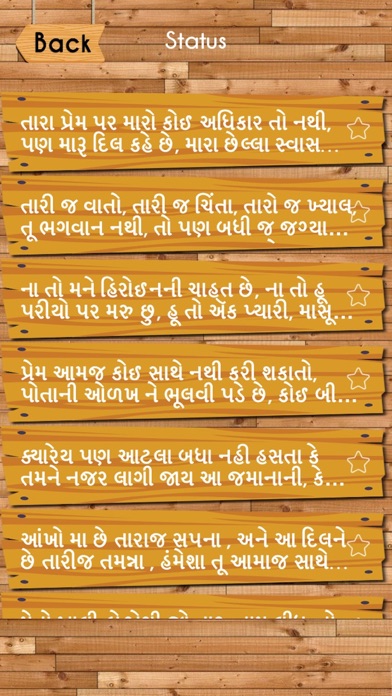 Back
Status
તારા પ્રેમ પર મારો કોઈ અધિકાર તો નથી,
પણ મારૂ દિલ કહે છે, મારા છેલ્લા સ્વાસ...
તારી જ વાતો, તારી જ ચિંતા, તારો જ ખ્યાલ
તૂ ભગવાન નથી, તો પણ બધી જ જગ્યા...
ના તો મને હિરોઇનની ચાહત છે, ના તો હૂ
પરીયો પર મરુ છુ, હૂ તો એક પ્યારી, માસૂ...
પ્રેમ આમજ કોઈ સાથે નથી કરી શકાતો,
પોતાની ઓળખ ને ભૂલવી પડે છે, કોઈ બી...
ક્યારેય પણ આટલા બધા નહી હસતા કે
તમને નજર લાગી જાય આ જમાનાની, કે...
આંખો મા છે તારાજ સપના , અને આ દિલને
છે તારીજ તમન્ના , હંમેશા તૂ આમાજ સાથે...